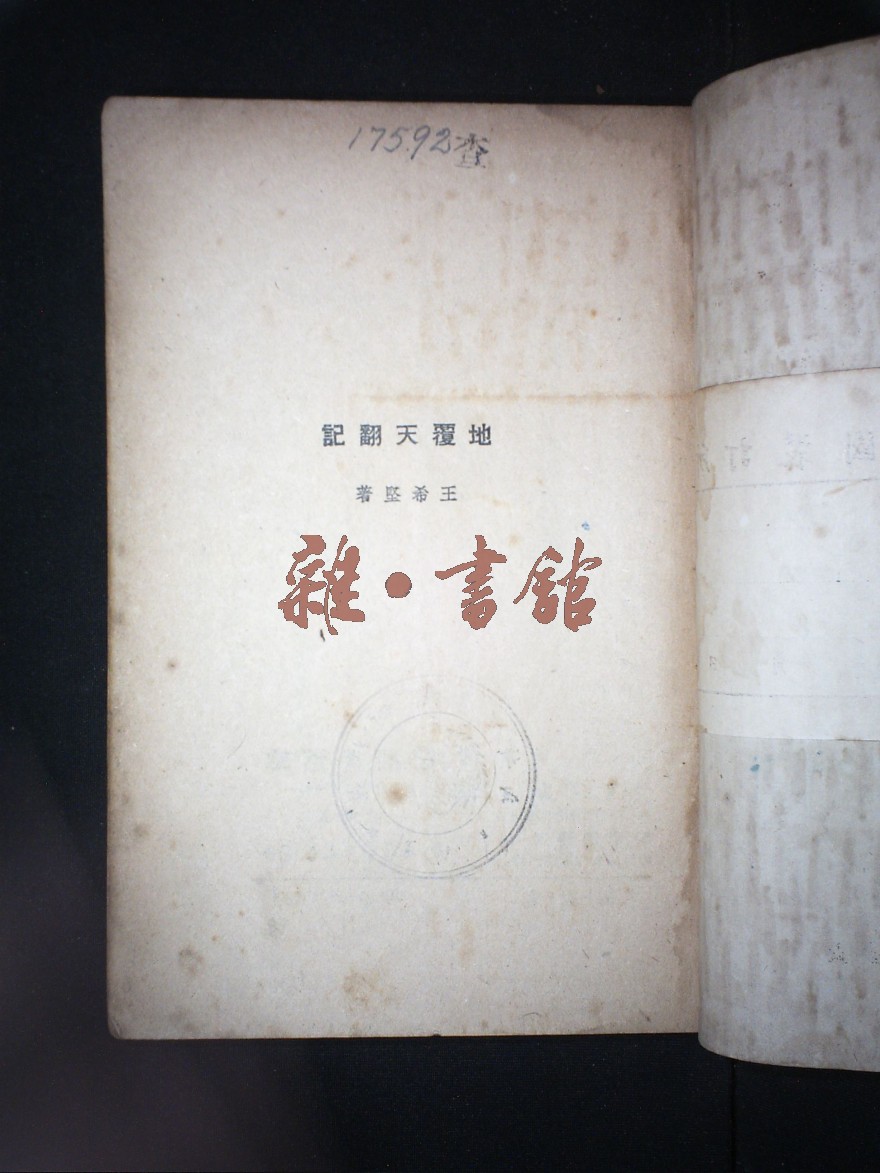 17592查
地覆天翻記
王希堅著
雜·書館